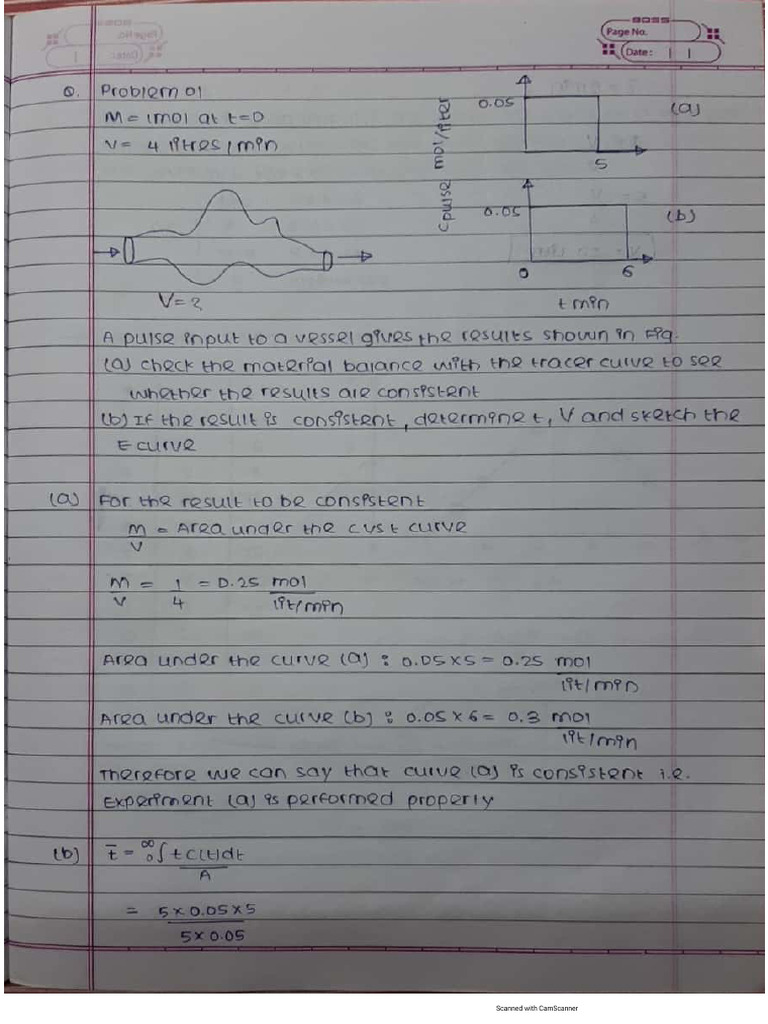 Page No.
Date: | |
Q. Problem 01
M = 1mol at t=0
v= 4 litres/min
Cpulse mol/liter
0.05
5
(a)
0.05
0
6
(b)
t min
V=?
A pulse input to a vessel gives the results shown in Fig.
(a) check the material balance with the tracer curve to see
whether the results are consistent
(b) If the result is consistent, determine t, V and sketch the
E curve
(a) For the result to be consistent
M/V = Area under the c vs t curve
M/V = 1/4 = 0.25 mol/lit/min
Area under the curve (a) : 0.05×5 = 0.25 mol/lit/min
Area under the curve (b) : 0.05 × 6 = 0.3 mol/lit/min
Therefore we can say that curve (a) is consistent i.e.
Experiment (a) is performed properly
(b) t̄ = ∞0∫ t c(t)dt/A
= 5×0.05×5/5×0.05
Scanned with CamScanner